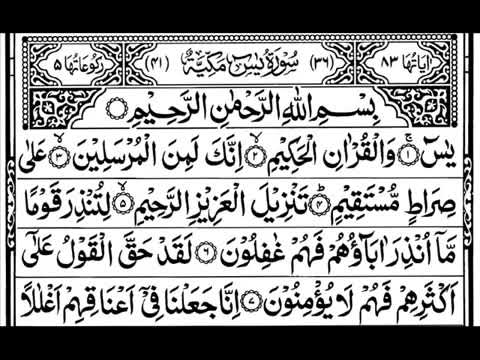 اٰیَاتُهَا ٨٣ (٣٦) سُوْرَةُ یٰسٓ مَکِّیَّةٌ (٤١) رُكُوْعَاتُهَا ٥
بِسْمِ اللّٰهِ الرَّحْمٰنِ الرَّحِیْمِ
یٰسٓ ۚ ۝١ وَالْقُرْاٰنِ الْحَكِیْمِ ۙ ۝٢ اِنَّكَ لَمِنَ الْمُرْسَلِیْنَ ۙ ۝٣ عَلٰى
صِرَاطٍ مُّسْتَقِیْمٍ ؕ ۝٤ تَنْزِیْلَ الْعَزِیْزِ الرَّحِیْمِ ۙ ۝٥ لِتُنْذِرَ قَوْمًا
مَّاۤ اُنْذِرَ اٰبَآؤُهُمْ فَهُمْ غٰفِلُوْنَ ۝٦ لَقَدْ حَقَّ الْقَوْلُ عَلٰۤى
اَكْثَرِهِمْ فَهُمْ لَا یُؤْمِنُوْنَ ۝٧ اِنَّا جَعَلْنَا فِیْۤ اَعْنَاقِهِمْ اَغْلٰلًا